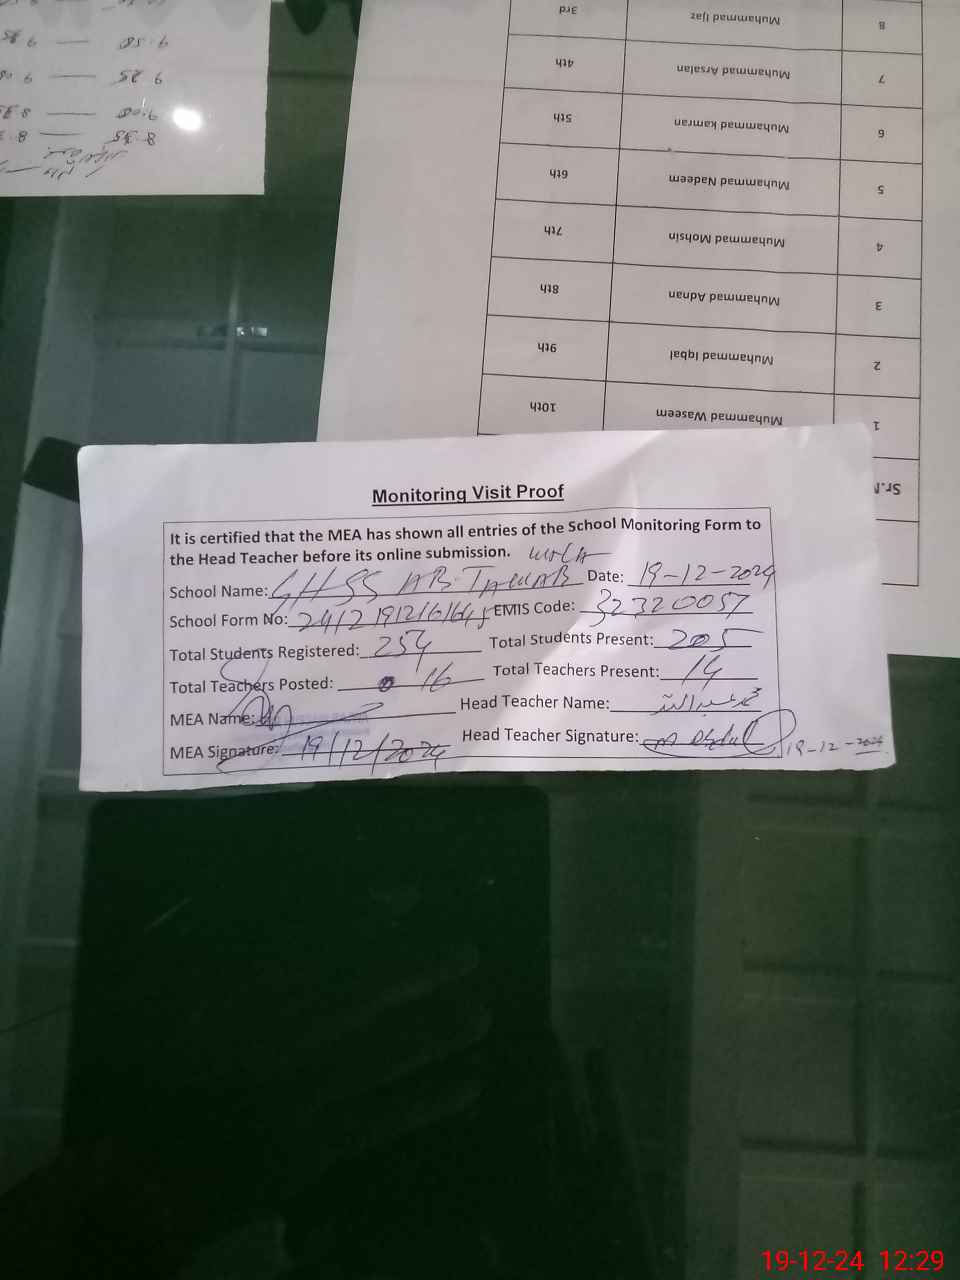 9.58
9 25
9.00
8.35
8 Muhammad Ijaz 3rd
7 Muhammad Arsalan 4th
6 Muhammad kamran 5th
5 Muhammad Nadeem 6th
4 Muhammad Mohsin 7th
3 Muhammad Adnan 8th
2 Muhammad Iqbal 9th
1 Muhammad Waseem 10th
Monitoring Visit Proof
It is certified that the MEA has shown all entries of the School Monitoring Form to
the Head Teacher before its online submission.
School Name: GHSS Date: 19-12-2024
School Form No: EMIS Code: 32320057
Total Students Registered: 254 Total Students Present: 205
Total Teachers Posted: 16 Total Teachers Present: 14
MEA Name: Head Teacher Name: محمد عبدالله
MEA Signature: 19/12/2024 Head Teacher Signature: 19-12-2024
19-12-24 12:29